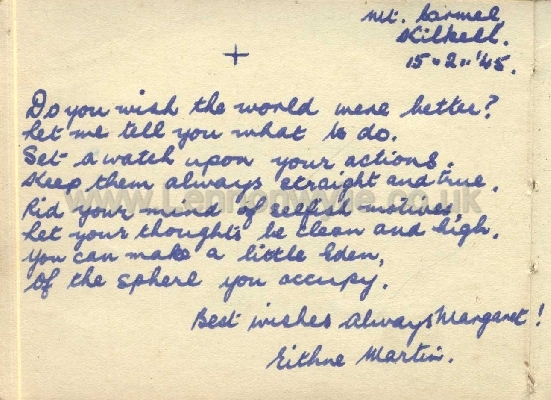 Mt. Carmel,
Kilkeel.
15" 2" '45.
+
Do you wish the world were better?
Let me tell you what to do.
Set a watch upon your actions,
Keep them always straight and true.
Rid your mind of selfish motives,
Let your thoughts be clean and high.
You can make a little Eden,
Of the sphere you occupy.
Best wishes always Margaret!
Eithne Martin.